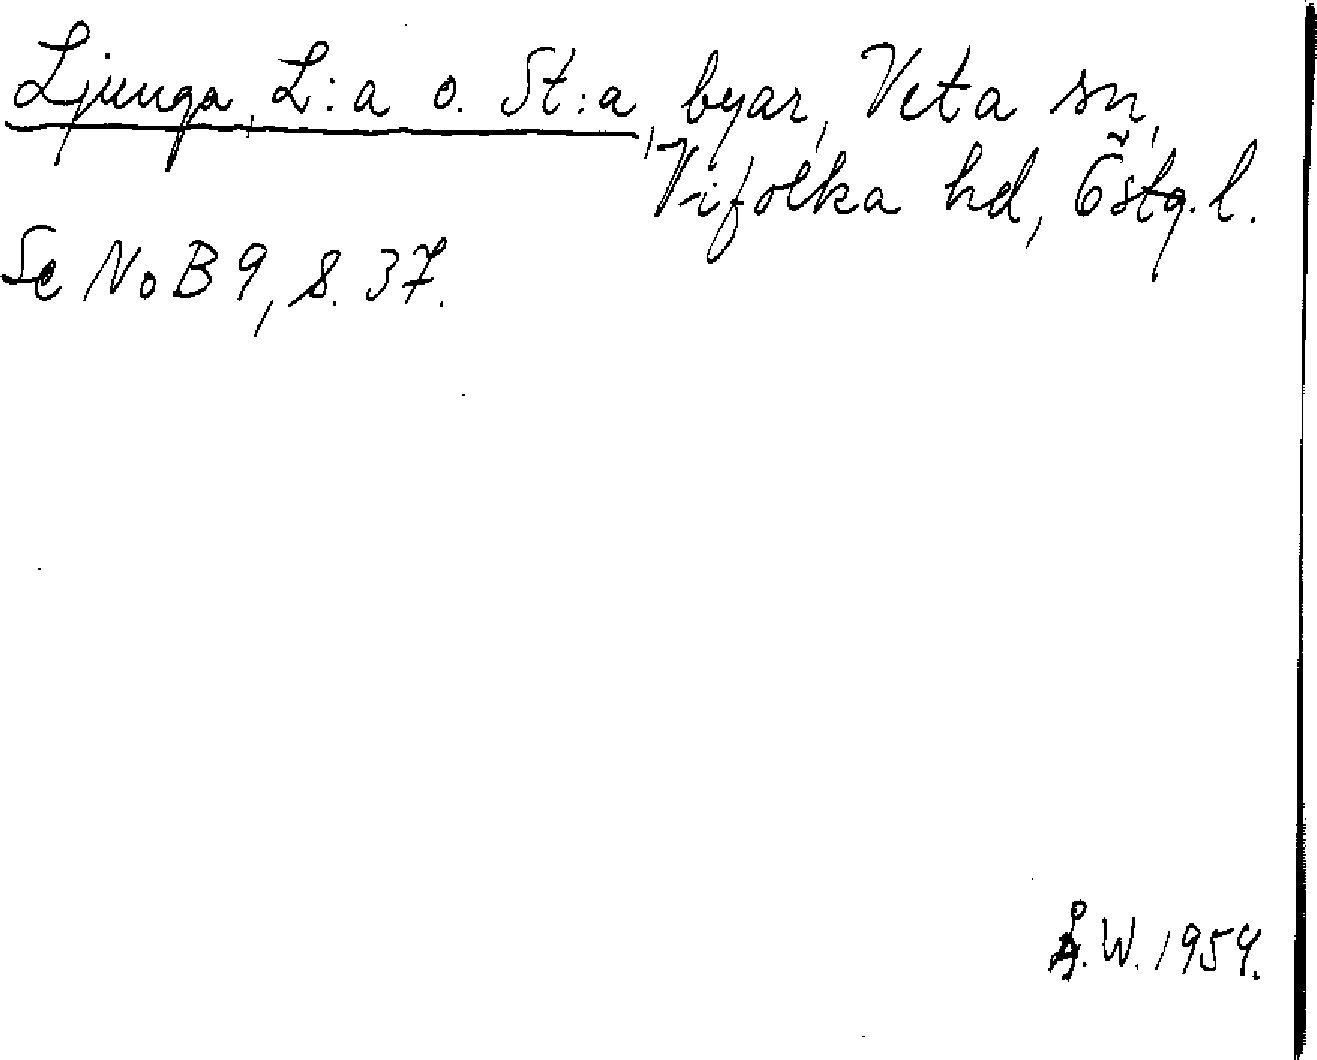 Ljunga, L:a o. St:a, byar, Veta sn,
Vifolka hd, Östg. l.
Se NoB 9, s. 37.
Å.W. 1954.